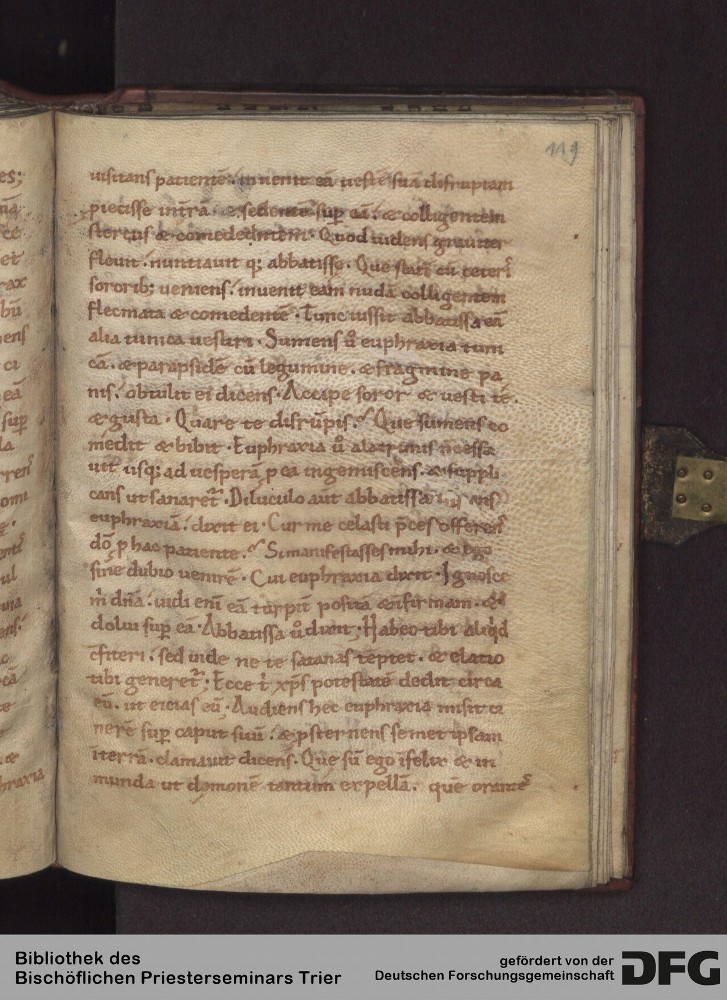 119
uisitans patientē. inuenit eā uestē suā disruptam
piecisse in t̄rā. & sedentē sup eā. & colligentem
stercus & comedentem. Quod uidens grauiter
fleuit. nuntiauit q; abbatisse. Que statī cū ceterꝭ
sororib; ueniens. inuenit eam nudā colligentem
flecmata & comedentē. Tunc iussit abbatissa eā
alia tunica uestiri. Sumens ů euphraxia tuni
cā. & parapsidē cū legumine. & fragmine pa
nis. obtulit ei dicens. Accipe soror & uesti te.
& gusta. Quare te disrūpis. Que sumens co
medit & bibit. Euphraxia ů
uit usq; ad uesperā p ea ingemiscens. & suppli
cans ut sanaret᷑. Diluculo aut abbatissa
euphraxiā. dixit ei. Cur me celasti p̄ces offerens
dō p hac patiente. Si manifestasses mihi. & ego
sine dubio uenirē. Cui euphraxia dixit. Ignosce
m̍ dn̄a. uidi eni eā turpit̄ positā & infirmam. &
dolui sup eā. Abbatissa ů dixit. Habeo tibi aliqd
c̄fiteri. sed uide ne te satanas tēptet. & elatio
tibi generet᷑. Ecce t̍ xp̄s potestatē dedit circa
eū. ut eicias eū. Audiens hec euphraxia misit ci
nerē sup caput suū. & psternens semet ipsam
ī terrā. clamauit dicens. Que sū ego īfelix & in
munda ut demonē tantum expellā. que orantes
es;
nā
ce
et
rax
bū
ens
ci
eā
sup
la
omi
ul
cā
te
&
hraxia
Bibliothek des
Bischöflichen Priesterseminars Trier
gefördert von der
Deutschen Forschungsgemeinschaft
DFG